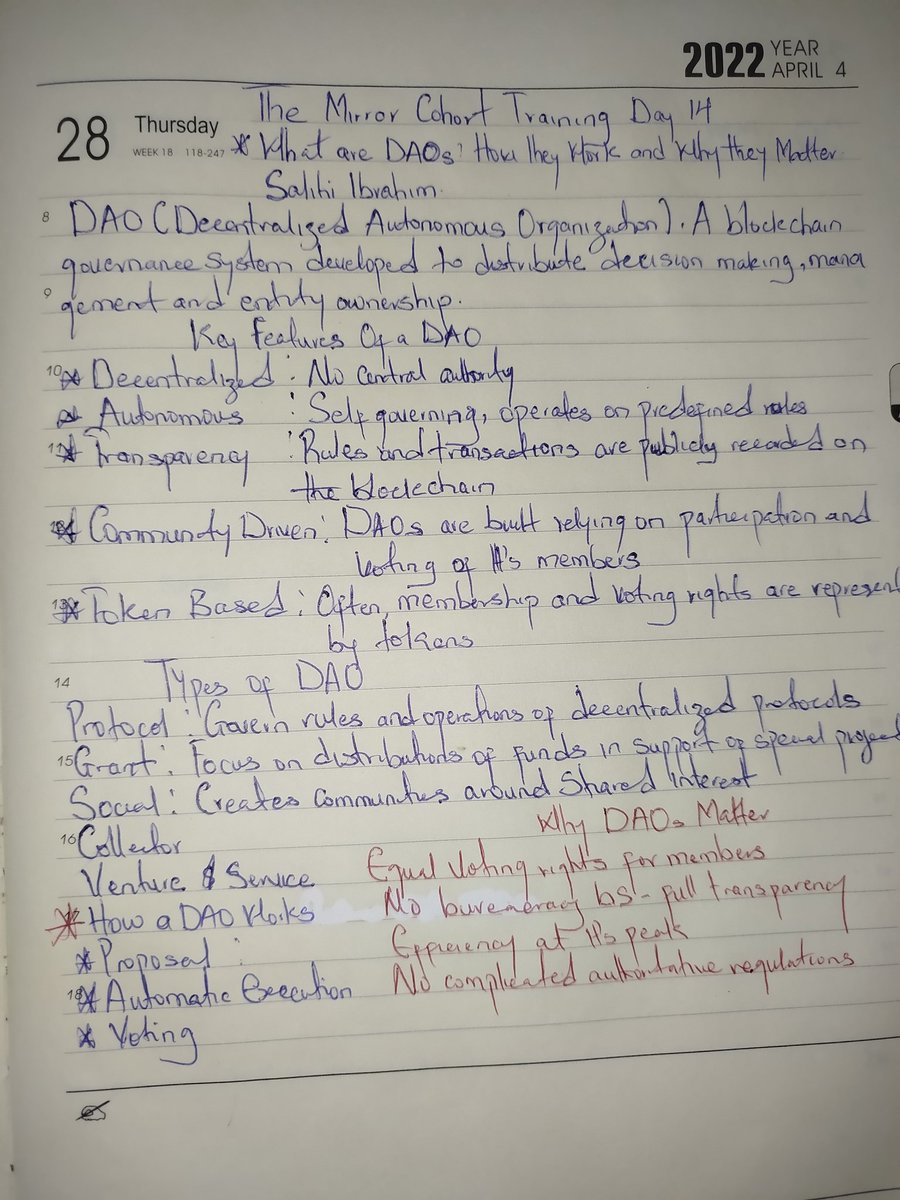 2022 YEAR
APRIL 4
28 Thursday
WEEK 18 118-247
The Mirror Cohort Training Day 14
* What are DAOs: How They Work and Why they Matter
Salihi Ibrahim.
8 DAO (Decentralized Autonomous Organization). A blockchain
governance system developed to distribute decision making, mana
9 gement and entity ownership.
Key Features Of a DAO
10 * Decentralized : No Central authority
* Autonomous : Self governing, operates on predefined rules
11 * Transparency : Rules and transactions are publicly recorded on
the blockchain
12 * Community Driven : DAOs are built relying on participation and
Voting of It's members
13 * Token Based : Often, membership and Voting rights are represent
by tokens
14 Types of DAO
Protocol : Govern rules and operations of decentralized protocols
15 Grant : Focus on distributions of funds in support of special project
Social : Creates Communities around Shared Interest
16 Collector
Venture & Service
* How a DAO Works
* Proposal :
18 * Automatic Execution
* Voting
Why DAOs Matter
Equal Voting rights for members
No bureaucracy bs - full transparency
Efficiency at It's peak
No complicated authoritative regulations